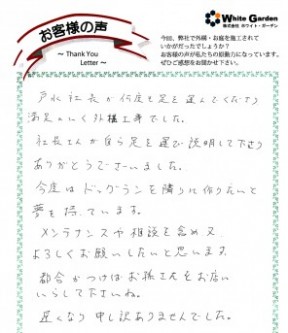 お客様の声
～ Thank You
Letter ～
White Garden
株式会社 ホワイト・ガーデン
今回、弊社で外構・お庭を施工されて
いかがだったでしょうか？
お客様の声が私たちの原動力になっています。
ぜひご感想をお聞かせ下さい。
戸水社長が何度も足を運んでくださり
満足のいく外構工事でした。
社長さんが自ら足を運び説明して下さり
ありがとうございました。
今度はドッグランを隣りに作りたいと
夢を持っています。
メンテナンスや相談を含め又
よろしくお願いしたいと思います。
都合がつけばお孫さんとお店に
いらして下さいね。
遅くなり申し訳ありませんでした。